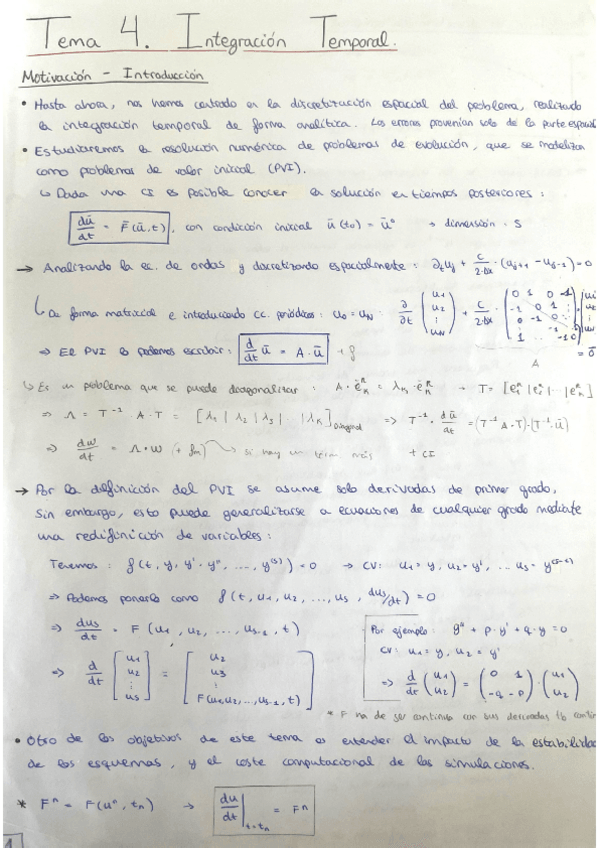 Tema 4. Integración Temporal.
Motivación - Introducción
• Hasta ahora, nos hemos centrado en la discretización espacial del problema, realizando
la integración temporal de forma analítica. Los errores provenían solo de la parte espacial
• Estudiaremos la resolución numérica de problemas de evolución, que se modelizan
como problemas de valor inicial (PVI).
↳ Dada una CI es posible conocer la solución en tiempos posteriores:
dū/dt = F̄(ū,t), con condición inicial ū(t₀) = ū⁰ → dimensión = S
→ Analizando la ec. de ondas y discretizando espacialmente: ∂ₜuⱼ + c/2·Δx · (uⱼ₊₁ - uⱼ₋₁) = 0
↳ De forma matricial e introduciendo CC. periódicas: u₀ = u_N: ∂/∂t (u₁ u₂ ⋮ u_N) + c/2·Δx ·
= 0̄
⇒ El PVI lo podemos escribir: d/dt ū = A·ū + f
A
↳ Es un problema que se puede diagonalizar:
⇒ Λ = T⁻¹·A·T = [λ₁|λ₂|λ₃|...|λ_k] Diagonal ⇒ T⁻¹·dū/dt = (T⁻¹A·T)·(T⁻¹·ū)
⇒ dw/dt = Λ·w (+ fm) → si hay un térm más + CI
→ Por la definición del PVI se asume solo derivadas de primer grado,
sin embargo, esto puede generalizarse a ecuaciones de cualquier grado mediante
una redifinición de variables:
Tenemos: f(t, y, y', y'', ..., y⁽ˢ⁾) = 0 → CV: u₁ = y, u₂ = y', ... us = y⁽ˢ⁻¹⁾
⇒ Podemos ponerlo como f(t, u₁, u₂, ..., us, dus/dt) = 0
⇒ dus/dt = F(u₁, u₂, ..., us-1, t)
Por ejemplo: y'' + p·y' + q·y = 0
CV: u₁ = y, u₂ = y'
⇒ d/dt [u₁ u₂ ⋮ us] = [u₂ u₃ ⋮ F(u₁,u₂,...,us-1,t)]
⇒ d/dt (u₁ u₂) = (0 1 -q -p)·(u₁ u₂)
* F ha de ser continua con sus derivadas tb
• Otro de los objetivos de este tema es entender el impacto de la estabilidad
de los esquemas, y el coste computacional de las simulaciones.
* Fⁿ = F(uⁿ, tₙ) → du/dt|t=tₙ = Fⁿ
1